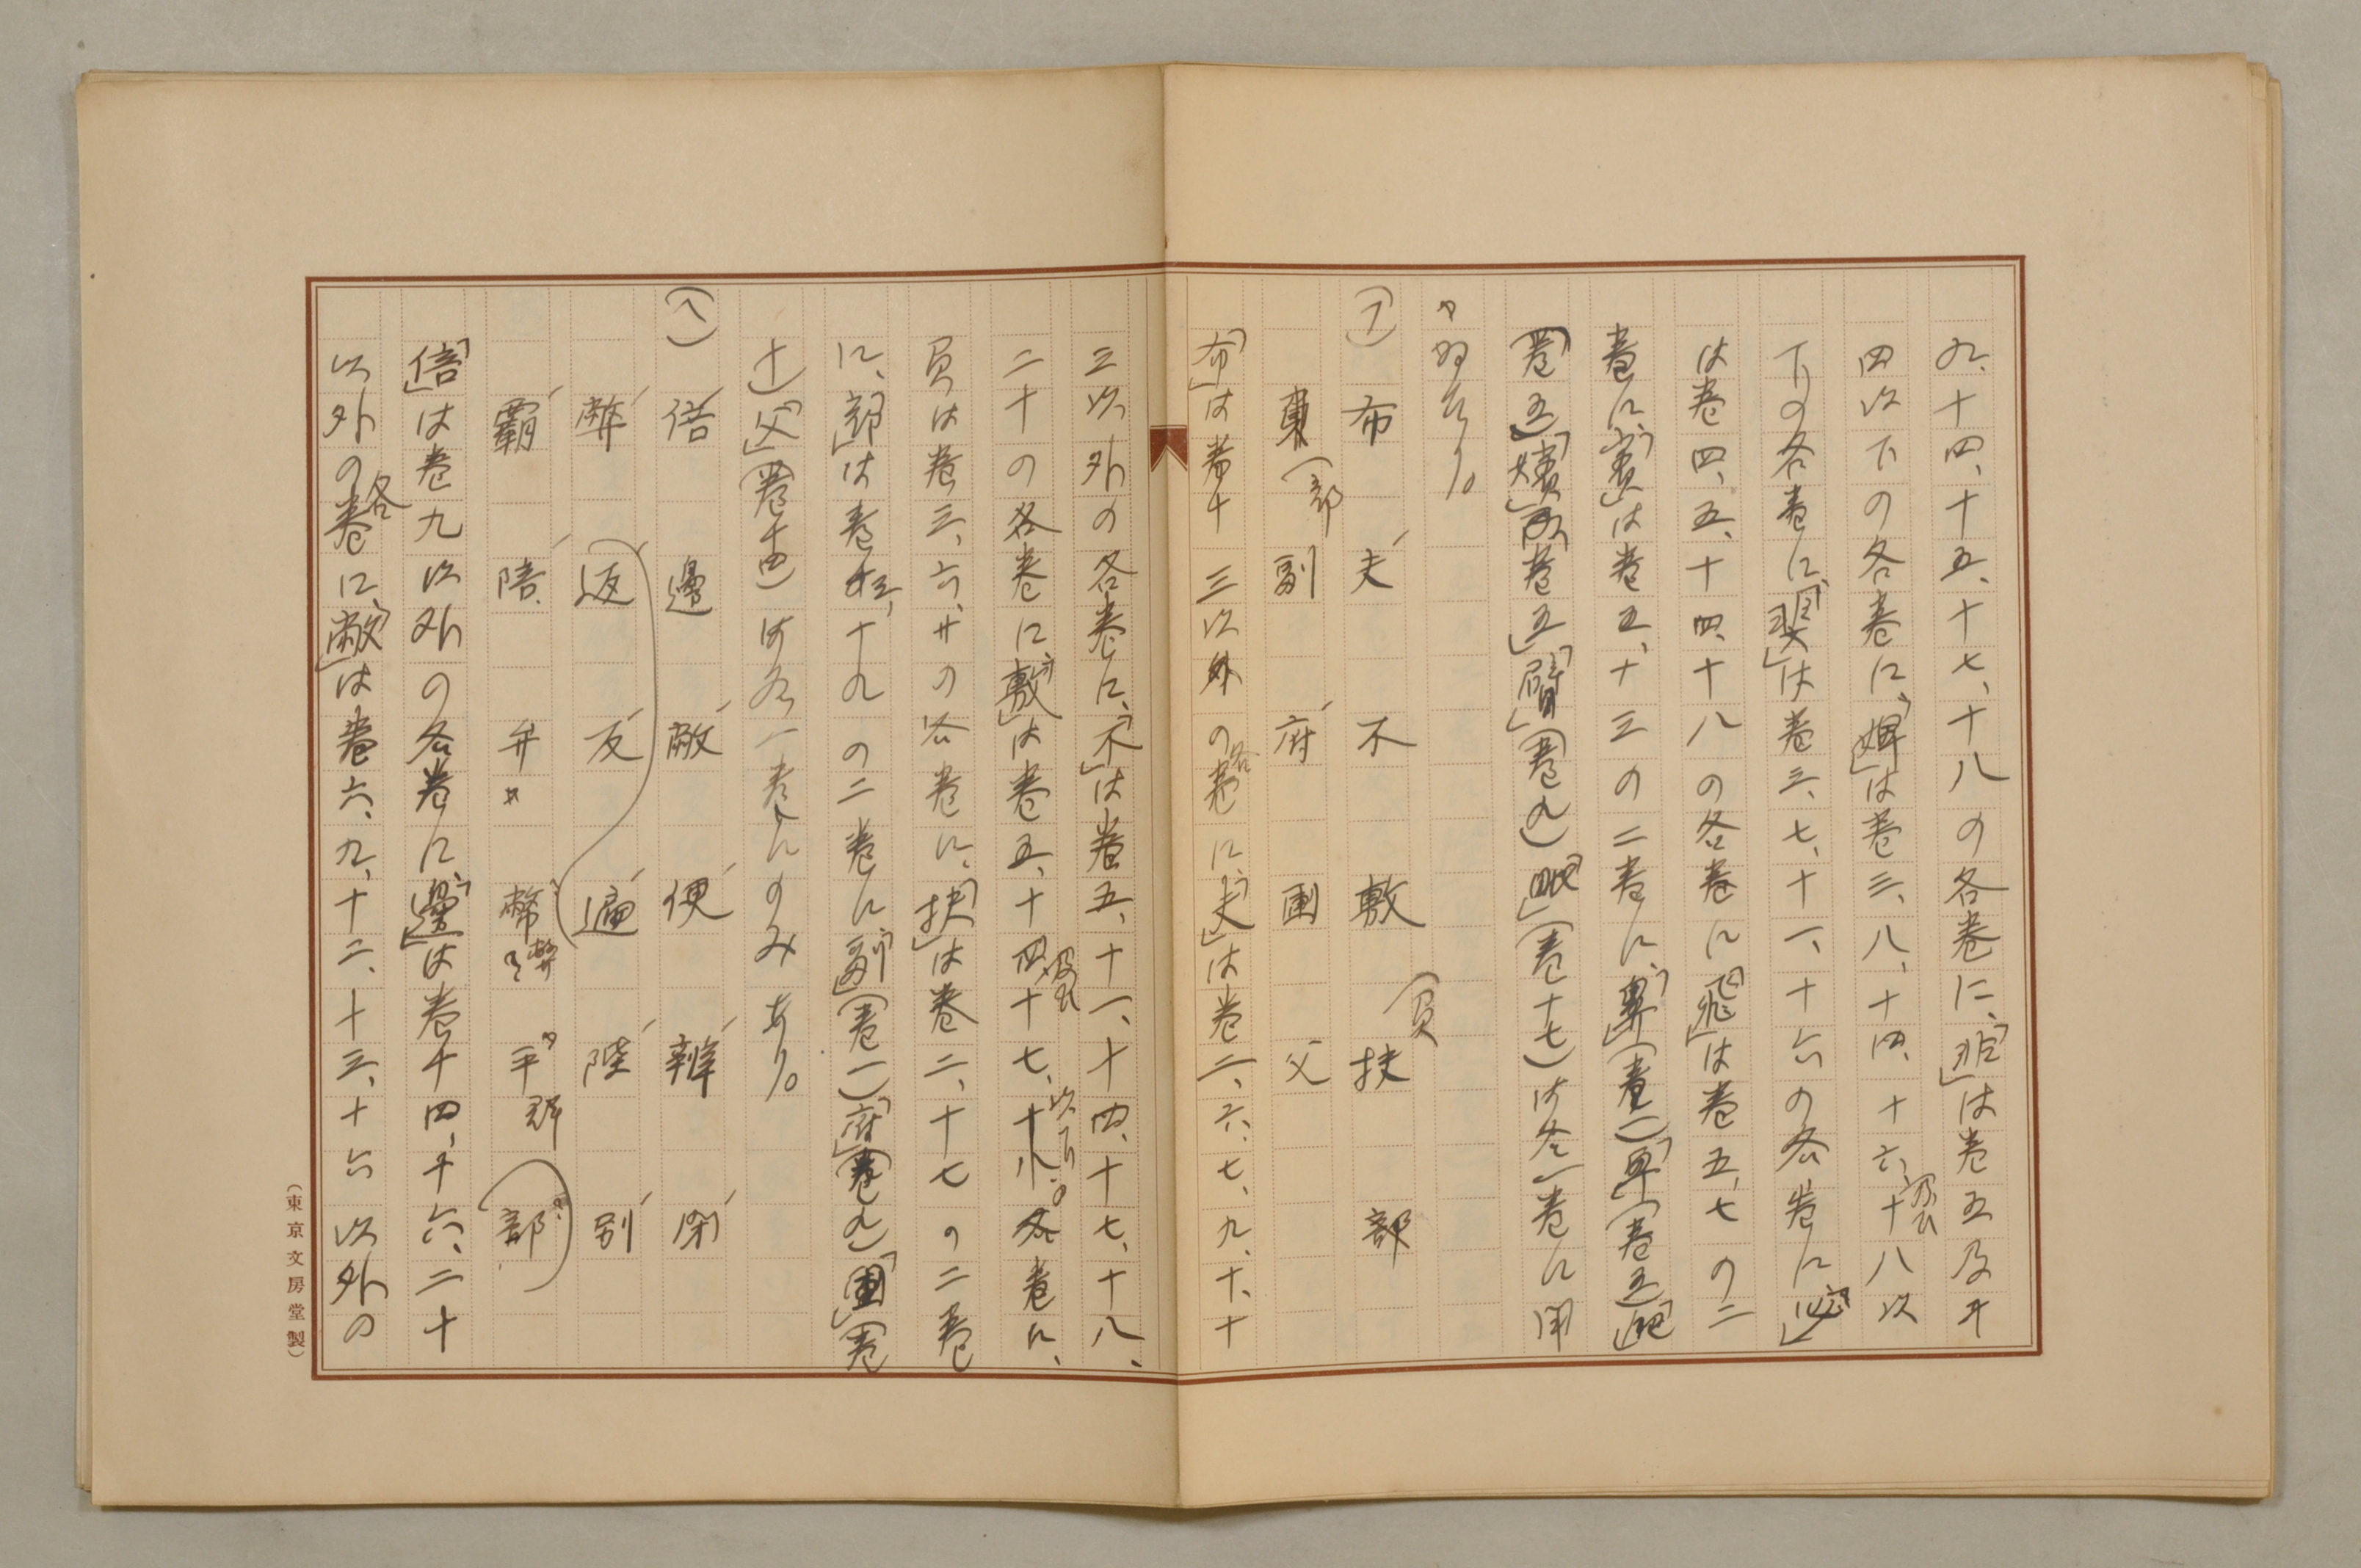 九、十四、十五、十七、十八の各巻に、「悲」は巻五及廿
四以下の各巻に、「婢」は巻三、八、十四、十六、及び十八以
下の各巻に、「斐」は巻三、七、十一、十六の各巻に、「必」
は巻四、五、十四、十八の各巻に、「飛」は巻五、七の二
巻に、「賓」は巻五、十三の二巻に、「鼻」(巻一)「卑」(巻五)「肥」
(巻五)「嬪」(巻五)「臂」(巻九)「毗」(巻十七)は各一巻に用
ゐたり。
(フ) 布 夫 不 敷 扶 部
(負
東 副 府 圃 父
(部
「布」は巻十三以外の各巻に、「夫」は巻二、六、七、九、十、十
三以外の各巻に、「不」は巻五、十一、十四、十七、十八、
二十の各巻に、「敷」は巻五、十四、及び十七、以下の各巻に、
負は巻三、六、廿の各巻に、「扶」は巻二、十七の二巻
に、「部」は巻五、十九の二巻に、「副」(巻一)「府」(巻九)「圃」(巻
十)「父」(巻十四)は各一巻にのみあり。
(ヘ) 倍 邊 敝 便 辨 閇
弊 返 反 遍 陛 別
覇 陪 弁 幣 弊 平群 (部)
「倍」は巻九以外の各巻に、「邊」は巻十四、十六、二十
以外の各巻に、「敝」は巻六、九、十二、十三、十六以外の
(東京文房堂製)